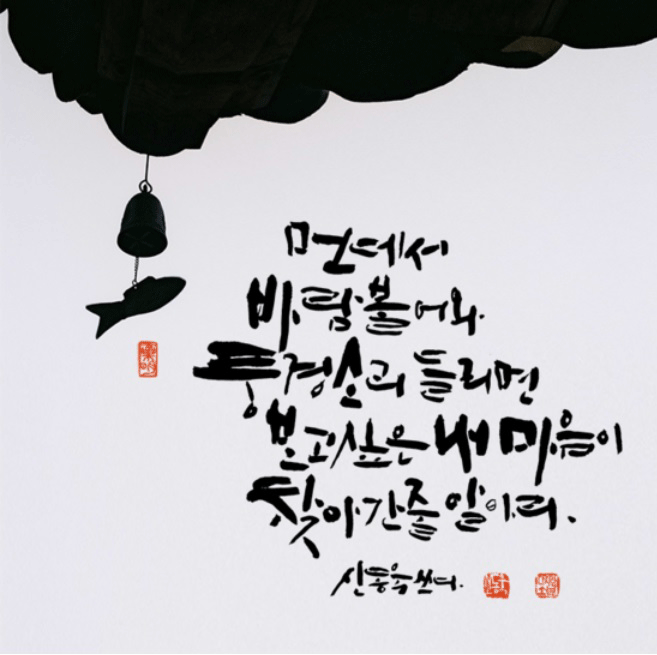 먼데서
바람 불어와
풍경소리 들리면
보고싶은 내 마음이
찾아간줄 알아라.
신동욱 쓰다.